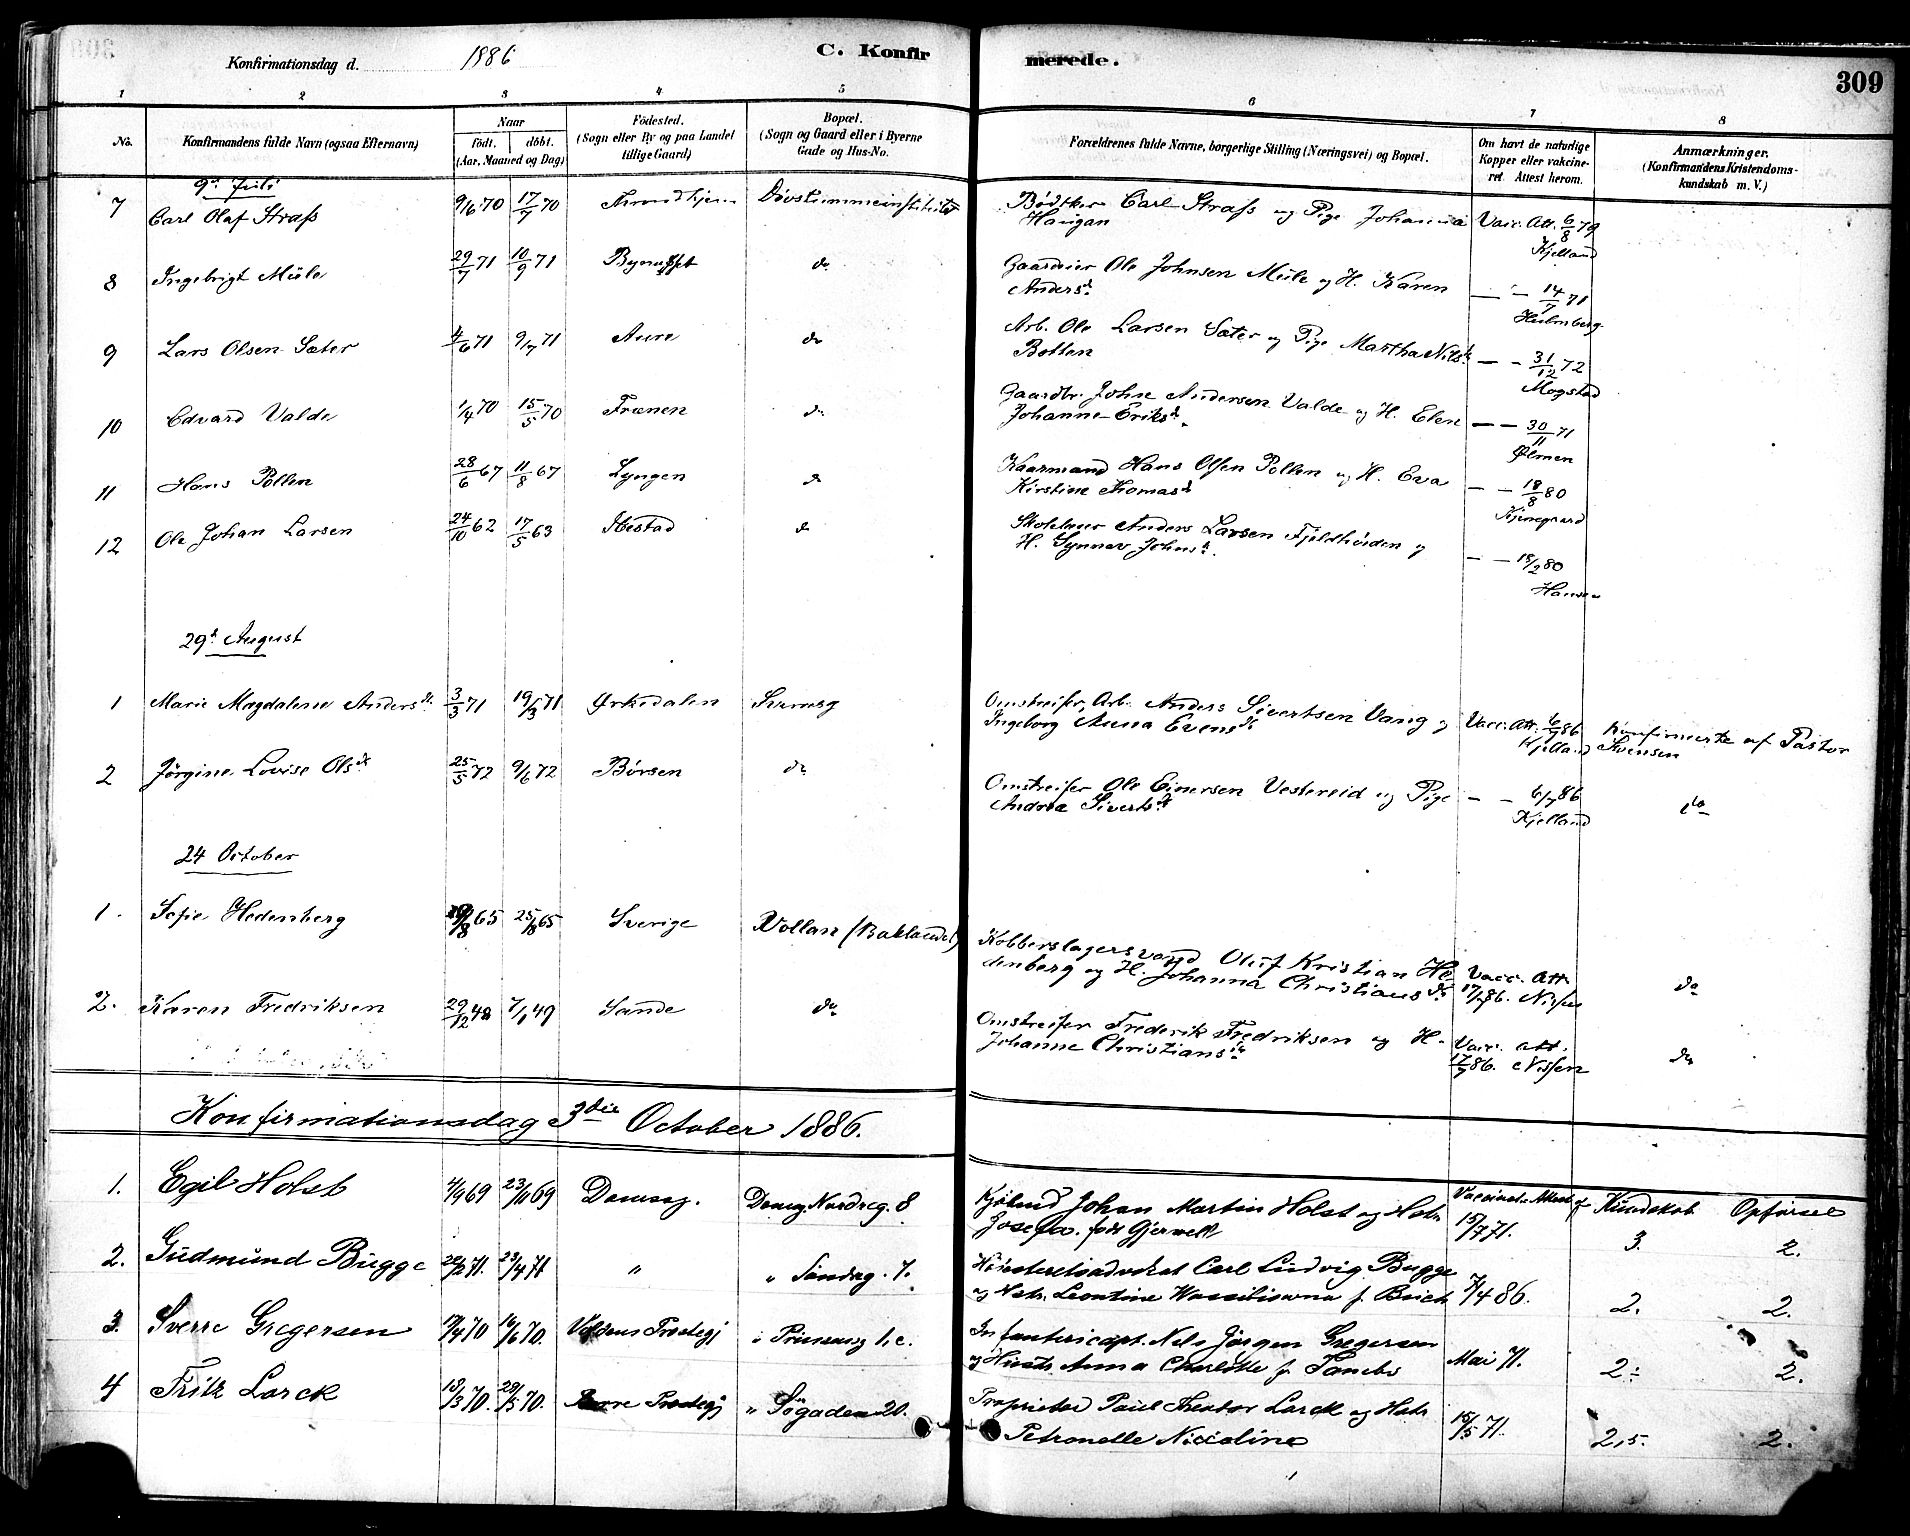 Konfirmationsdag d. 1886 C. Konfirmerede. 309
1 2 3 4 5 6 7 8
No. Konfirmandens fulde Navn (ogsaa Efternavn) Naar født. døbt. (Aar, Maaned og Dag) Fødested. (Sogn eller By og paa Landet tillige Gaard) Bopæl. (Sogn og Gaard eller i Byerne Gade og Hus-No. Forældrenes fulde Navne, borgerlige Stilling (Næringsvei) og Bopæl. Om havt de naturlige Kopper eller vakcineret. Attest herom. Anmærkninger. (Konfirmandens Kristendomskundskab m. V.)
9de Juli
7 Carl Olaf Strass 9/6 70 17/7 70 Trondhjem Døvstummeinstitutet Bødtker Carl Strass og Pige Johanna Haugan Vacc. Att. 6/8 79 Kjelland
8 Ingebrigt Mule 29/7 71 10/9 71 Bynesset do Gaardeier Ole Johnsen Mule og H. Karen Andersd. — " — 14/7 71 Hulmberg
9 Lars Olsen Sæter 4/6 71 9/7 71 Aure do Arb. Ole Larsen Sæter og Pige Martha Nilsd. Botten — - 31/12 72 Mogstad
10 Edvard Valde 1/4 70 15/5 70 Frænen do Gaardbr. Johne Andersen Valde og H. Elen Johanne Eriksd. — — 30/11 71 Ølmen
11 Hans Pollen 28/6 67 11/8 67 Lyngen do Kaarmand Hans Olsen Pollen og H. Eva Kirstine Thomasd. — — 18/8 80
12 Ole Johan Larsen 24/10 62 17/5 63 Ibestad do Skolelærer Anders Larsen Fjeldhøiden og H. Synnøv Johnsd. — — 18/2 80 Hansen
29de August
1 Marie Magdalene Andersd. 3/3 71 19/3 71 Ørkedalen Omstreifer, Arb. Anders Sivertsen Vang og Ingeborg Anna Evensd. Vacc. Att. 6/7 86 Kjelland Konfirmerte af Pastor Svensen
2 Jørgine Lovise Olsd. 25/5 72 9/6 72 Børsen do Omstreifer Ole Einersen Vestereid og Pige Andrea Sivertsd. — — 6/7 86 Kjelland do
24 October
1. Sofie Hedenberg 25/8 65 Sverige Vollan (Baklandet) Kobberslagersvend Oluf Kristian Hedenberg og H. Johanna Christiansd. Vacc. Att. 17/7 86. Nissen do
2. Karen Fredriksen 29/12 48 7/1 49 Sande do Omstreifer Frederik Fredriksen og H. Johanne Christiansd. Vacc. att. 17/7 86. Nissen do
Konfirmationsdag 3die October 1886.
1. Egil Holst 4/9 69 23/11 69 Domsog. Domsog. Nordreg. 8 Kjøbmd Johan Martin Holst og Hstr. Josefa. født Gjerwell Vaccinat. Attest af 15/7 71. Kundskab 3. Opførsel 2.
2. Gudmund Bugge 23/4 71 " " Søndreg. 7. Høiesteretsadvokat Carl Ludvig Bugge og Hstr. Leontine Wassiliowna f. Brich 7/4 86. 2. 2.
3. Sverre Gregersen 17/4 70 16/6 70. Voldens Prestegj " Prinsensg 1, c. Infantericapt. Nels Jørgen Gregersen og Hustr. Anna Charlotte f. Mai 71. 2÷ 2.
4 Fritz Lorck 18/3 70. 29/5 70. Prestegj " Søgaden 20. Proprietær Paul Theodor Lorck og Hstr. Petronelle Nicoline 15/5 71. 2,5. 2.